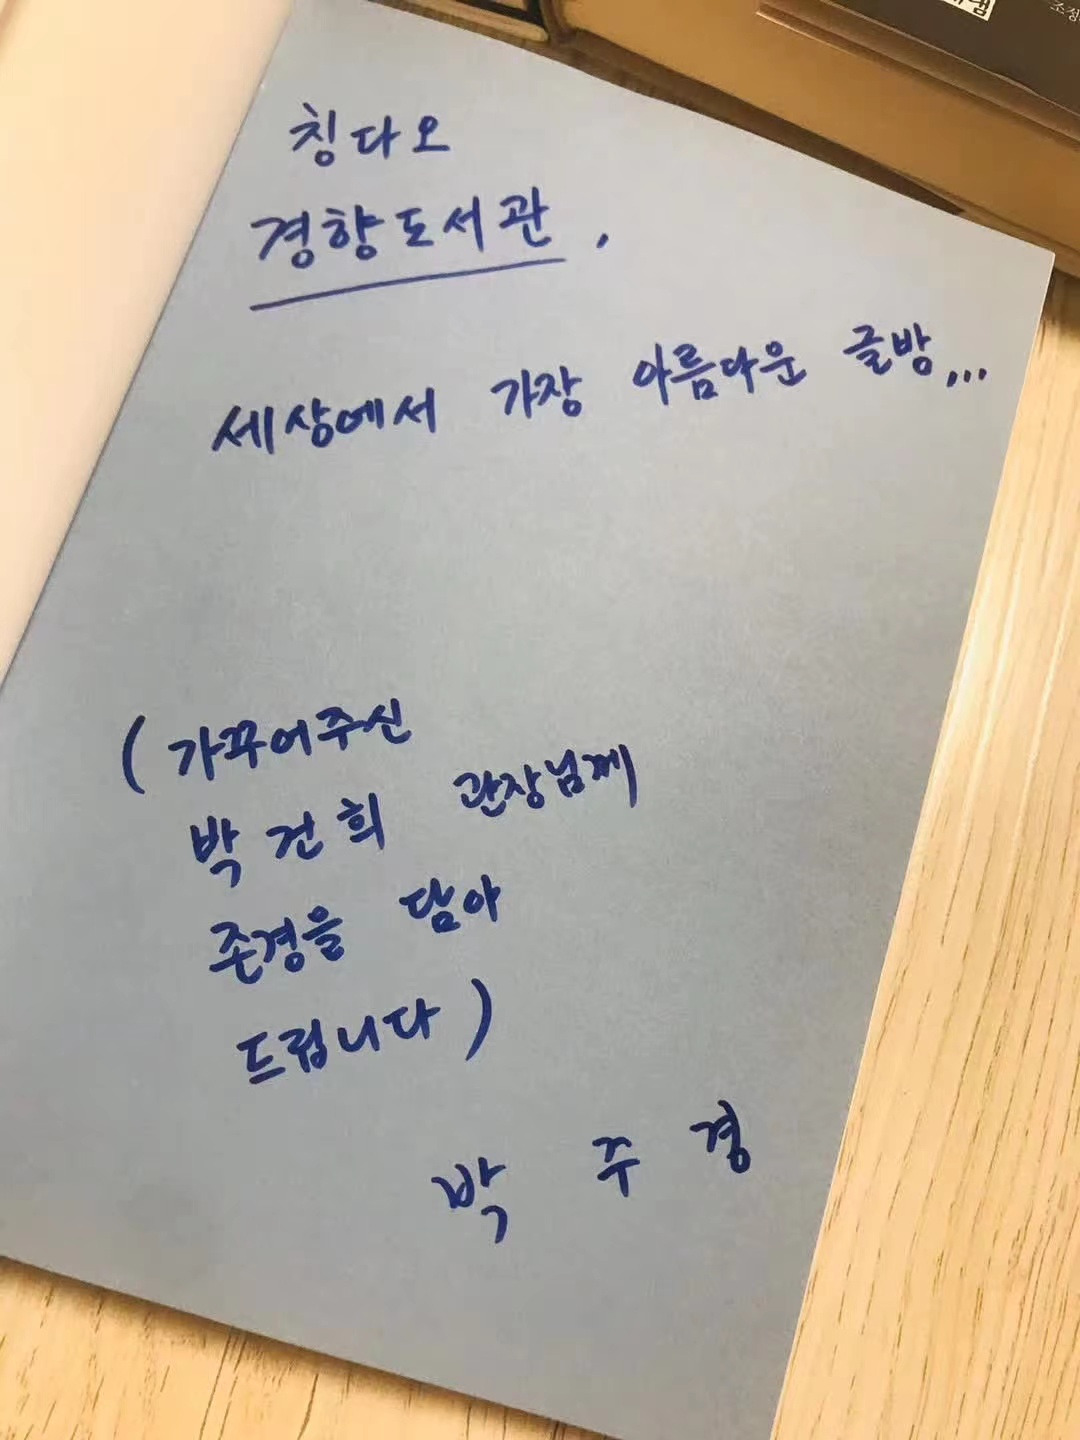 칭다오
경향도서관,
세상에서 가장 아름다운 글방...
(가꾸어주신
박건희 관장님께
존경을 담아
드립니다)
박 주 경